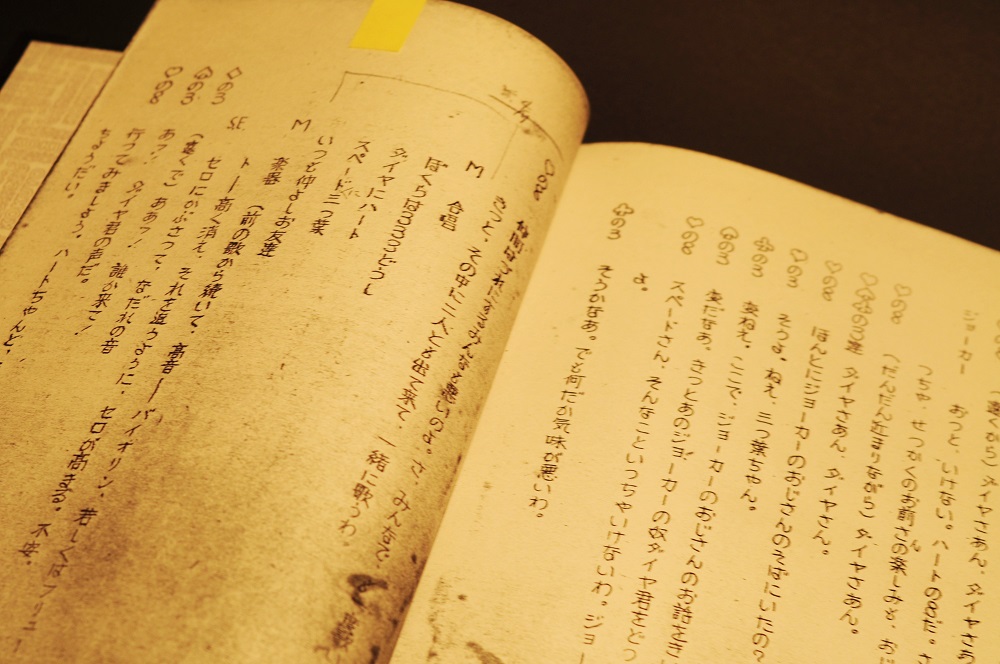 遠くから)ダイヤさあん、ダイヤさあ
ジョーカー おっと、いけない。ハートの8だ。さ
つちゃ、せっかくのお前さんの楽しみも、おじ
♡の8 (だんだん近まりながら)ダイヤさあん。
ダイヤさあん、ダイヤさん。
♡の8 ほんとにジョーカーのおじさんのそばにいたの?
♡の3 そうよ。ねえ、三つ葉ちゃん。
♧の3 変ねえ。ここで、ジョーカーのおじさんのお話をきい
♤の3 変だなあ。きっとあのジョーカーの奴ダイヤ君をどっ
♡の8 スペードさん、そんなこといっちゃいけないわ。ジョー
よ。
♧の3 そうかなあ。でも何だか気味が悪いわ。
♡の8 仲間はづれにするみんなも悪いのよ。さ、みんなで、
きっと、その中に二人とも出て来て、一緒に歌うわ。
M 合唱
ぼくらは333どうし
ダイヤにハート
スペードに三つ葉
いつも仲よしお友達
M 楽器 (前の歌から続いて、高音―バイオリン、若しくは
トー高く消え、それを追うように、セロが高まる。不安。
SE セロにかぶさって、なだれの音
♢の3 (遠くで)ああっ! 誰か来て!
♤の3 あっ! ダイヤ君の声だ。
♡の8 行ってみましょう。ハートちゃんと、
ちょうだい。